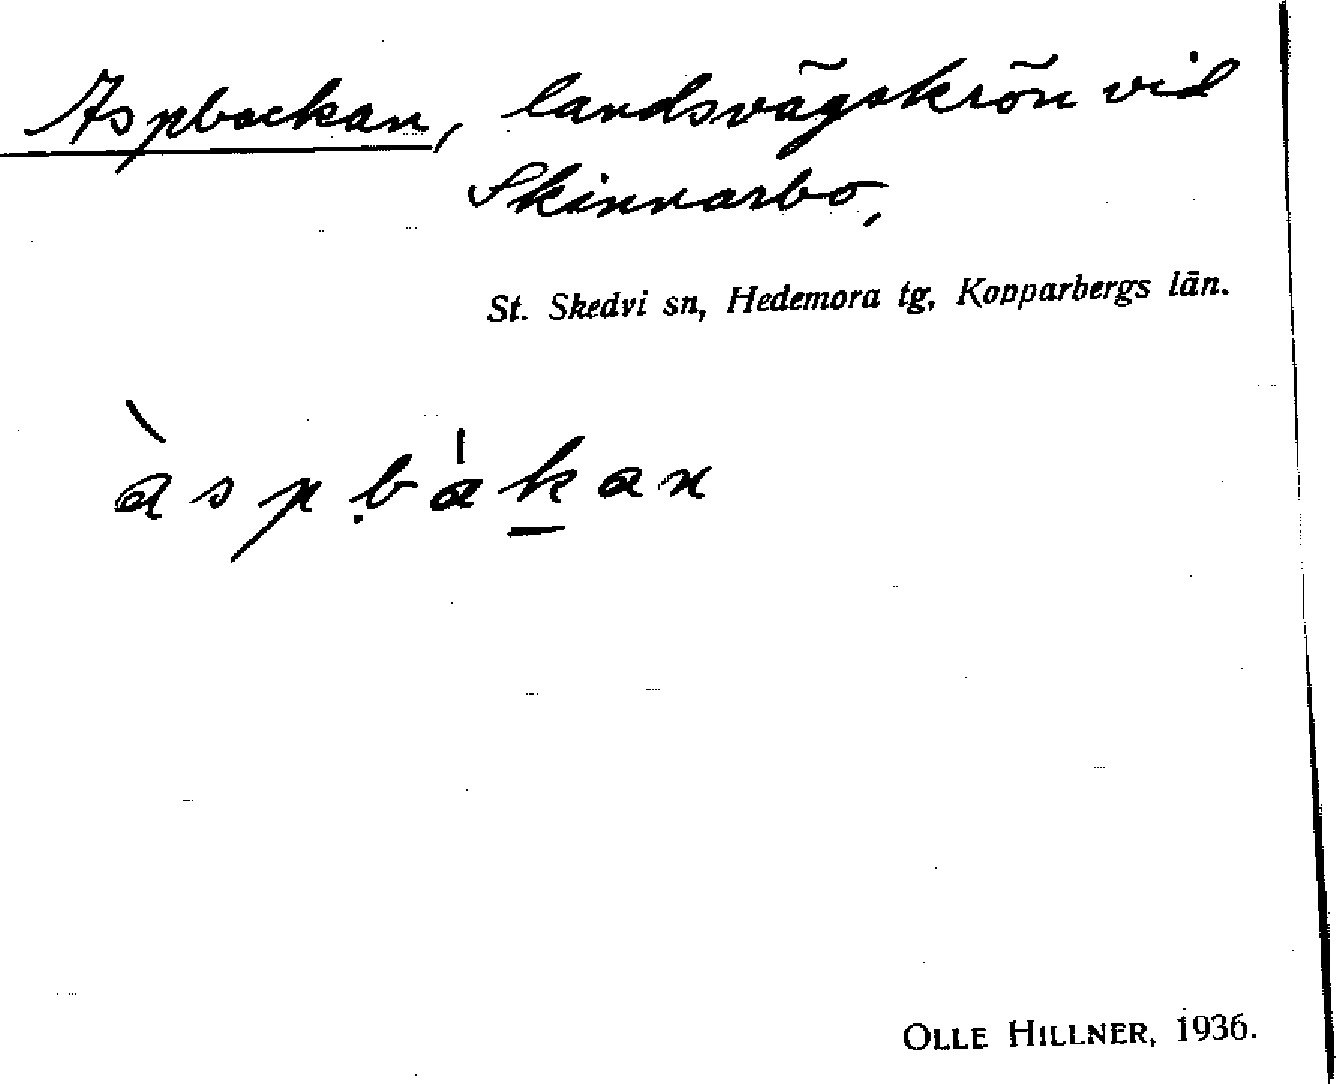 Aspbackan, landsvägskrön vid
Skinnarbo,
St. Skedvi sn, Hedemora tg, Kopparbergs län.
àspḅa̍ḵan
OLLE HILLNER, 1936.